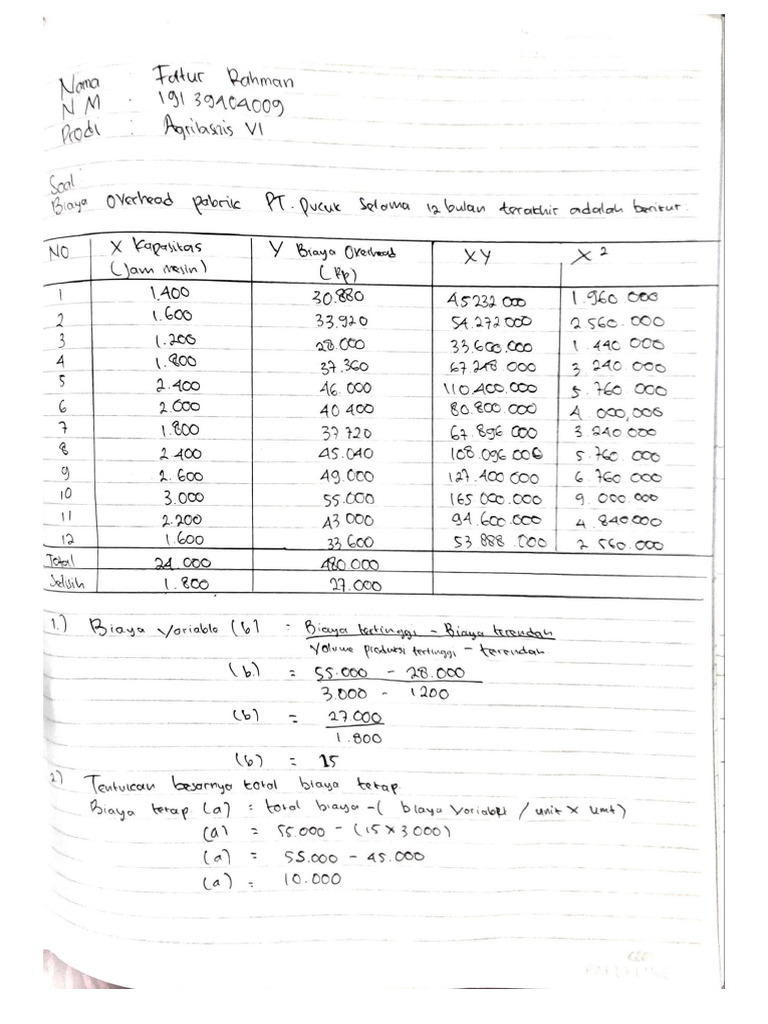 Nama : Fatur Rahman
NM : 19139404009
Prodi : Agribisnis VI
Soal :
Biaya Overhead pabrik PT. Pucuk Selama 12 bulan terakhir adalah berikut :
NO X Kapasitas (Jam mesin) Y Biaya Overhead (Rp) XY X²
1 1.400 30.880 45232 000 1.960 000
2 1.600 33.920 54.272 000 2 560.000
3 1.200 28.000 33.600.000 1 440 000
4 1.800 37.360 67 248 000 3 240.000
5 2.400 46.000 110.400.000 5.760 000
6 2.000 40 400 80.800.000 4 000,000
7 1.800 37 720 67.896 000 3.240 000
8 2 400 45.040 108.096 000 5.760.000
9 2.600 49.000 127.400 000 6.760 000
10 3.000 55.000 165 000.000 9 000.000
11 2.200 43 000 94.600.000 4 840000
12 1.600 33 600 53 888.000 2 560.000
Total 24 000 480.000
Selisih 1.800 27.000
1.) Biaya Variable (b) = Biaya tertinggi - Biaya terendah
Volume produksi tertinggi - terendah
(b) = 55.000 - 28.000
3.000 - 1200
(b) = 27.000
1.800
(b) = 15
2) Tentukan besarnya total biaya tetap
Biaya tetap (a) = total biaya - ( biaya Variabel / unit x unit)
(a) = 55.000 - (15 x 3 000)
(a) = 55.000 - 45.000
(a) = 10.000